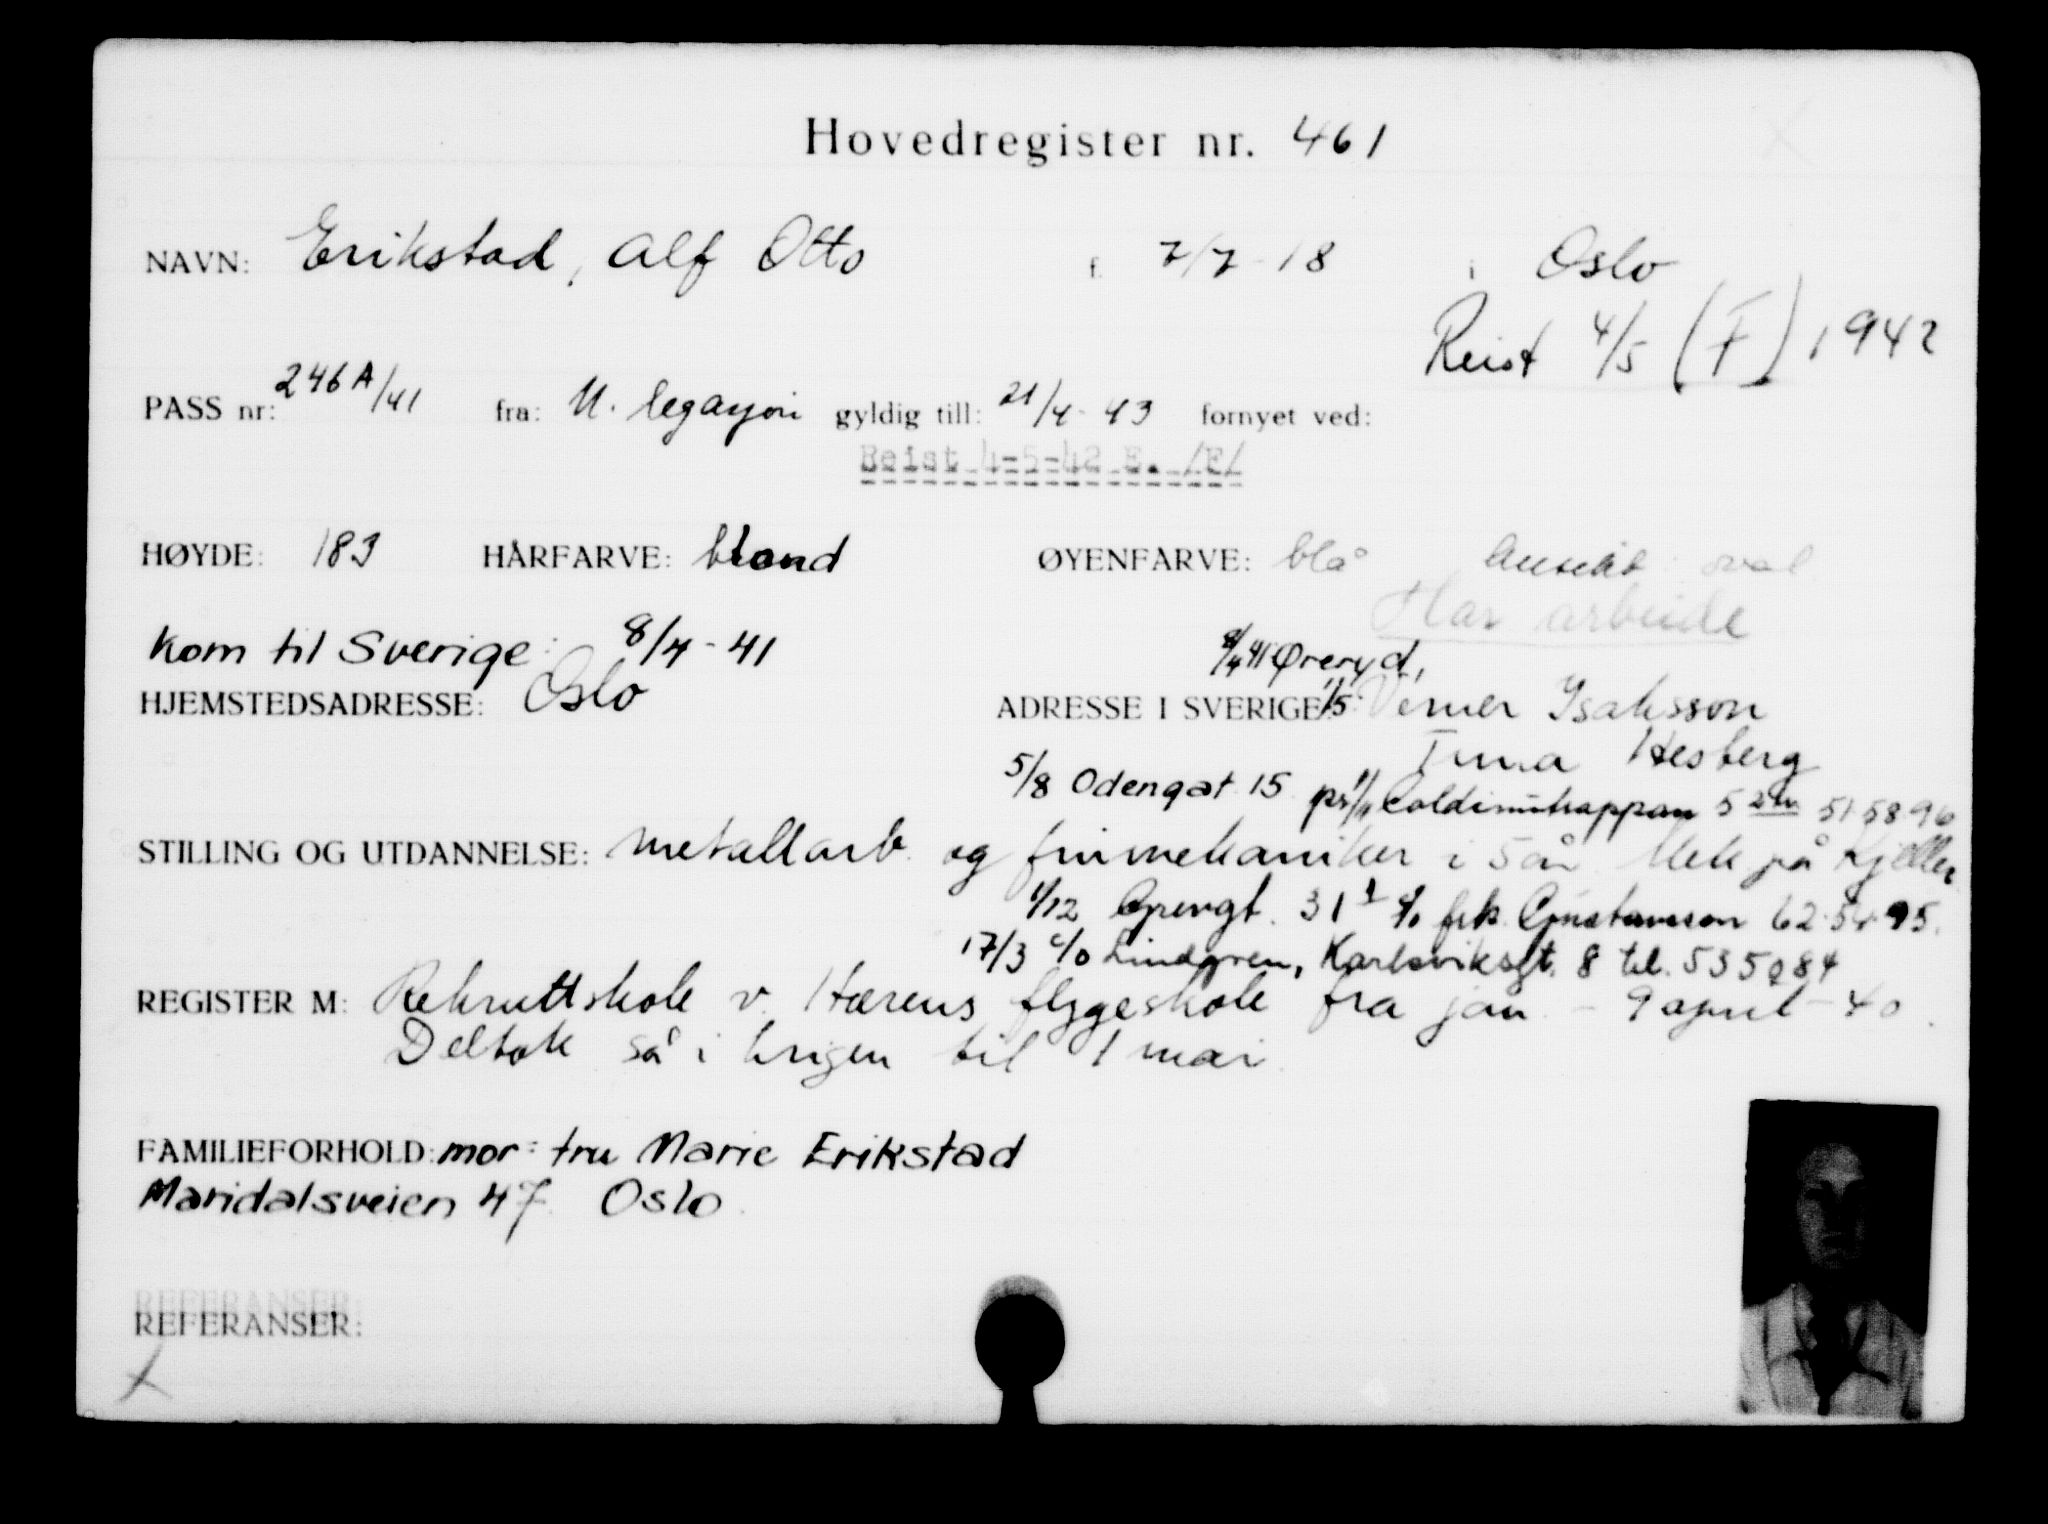 Hovedregister nr. 461
NAVN: Erikstad, Alf Otto f. 7/7-18 i Oslo
Reist 4/5 (F) 1942
PASS nr: 246A/41 fra: N. legasjon gyldig till: 21/4-43 fornyet ved:
Reist 4-5-42 E. /F/
HØYDE: 183 HÅRFARVE: blond ØYENFARVE: blå Ansikt oval
Har arbeide
Kom til Sverige: 8/4-41 8/4 41 Øreryd,
HJEMSTEDSADRESSE: Oslo ADRESSE I SVERIGE: 1/5 Verner Isaksson
Tuna Hesberg
5/8 Odengat 15 51 58 96
STILLING OG UTDANNELSE: metallarb. og finmekaniker i 5 år Mek på Kjeller
1/12 31 c/o frk. Gustavsson 62.54.95.
17/3 c/o Lindgren, Karlsviksgt. 8 tel. 535284
REGISTER M: Rekruttskole v. Hærens flygeskole fra jan. - 9 april - 40.
Deltok så i krigen til 1 mai.
FAMILIEFORHOLD: mor: fru Marie Erikstad
Maridalsveien 47. Oslo.
REFERANSER:
REFERANSER:
X